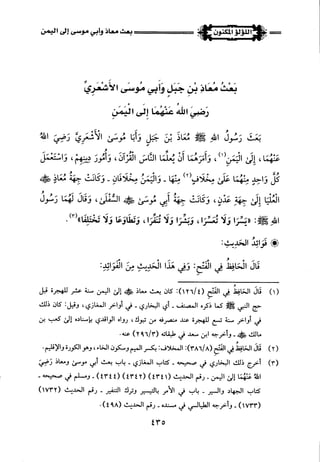 بعث معاذ وأبي موسى إلى اليمن
اللؤلؤ المكنون
بَعْثُ مُعَاذِ بْنِ جَبَلٍ وَأَبِي مُوسَى الأَشْعَرِيِّ
رَضِيَ اللهُ عَنْهُمَا إِلَى اليَمَنِ
بَعَثَ رَسُولُ اللهِ ﷺ مُعَاذَ بْنَ جَبَلٍ وَأَبَا مُوسَى الأَشْعَرِيَّ رَضِيَ اللهُ
عَنْهُمَا، إِلَى اليَمَنِ(١)، وَأَمَرَهُمَا أَنْ يُعَلِّمَا النَّاسَ القُرْآنَ، وَأُمُورَ دِينِهِمْ، وَاسْتَعْمَلَ
كُلَّ وَاحِدٍ مِنْهُمَا عَلَى مِخْلَافٍ(٢) مِنْهَا - وَاليَمَنُ مِخْلَافَانِ - وَكَانَتْ جِهَةُ مُعَاذٍ ﵁
العُلْيَا إِلَى جِهَةِ عَدَنٍ، وَكَانَتْ جِهَةُ أَبِي مُوسَى ﵁ السُّفْلَى، وَقَالَ لَهُمَا رَسُولُ
اللهِ ﷺ: «يَسِّرَا وَلَا تُعَسِّرَا، وَبَشِّرَا وَلَا تُنَفِّرَا، وَتَطَاوَعَا وَلَا تَخْتَلِفَا»(٣).
* فَوَائِدُ الحَدِيثِ:
قَالَ الحَافِظُ فِي الفَتْحِ: وَفِي هَذَا الحَدِيثِ مِنَ الفَوَائِدِ:
(١) قال الحافظ في الفتح (١٢٦/٤): كان بعث معاذ ﵁ إلى اليمن سنة عشر للهجرة قبل
حج النبي ﷺ كما ذكره المصنف - أي البخاري - في أواخر المغازي، وقيل: كان ذلك
في أواخر سنة تسع للهجرة عند منصرفه من تبوك، رواه الواقدي بإسناده إلى كعب بن
مالك ﵁، وأخرجه ابن سعد في طبقاته (٢٩٦/٣) عنه.
(٢) قال الحافظ في الفتح (٣٨٦/٨): المخلاف: بكسر الميم وسكون الخاء، وهو الكورة والإقليم.
(٣) أخرج ذلك البخاري في صحيحه - كتاب المغازي - باب بعث أبي موسى ومعاذ رضي
الله عنهما إلى اليمن - رقم الحديث (٤٣٤١) (٤٣٤٢) (٤٣٤٤) - ومسلم في صحيحه -
كتاب الجهاد والسير - باب في الأمر بالتيسير وترك التنفير - رقم الحديث (١٧٣٢)
(١٧٣٣) - وأخرجه الطيالسي في مسنده - رقم الحديث (٤٩٨).
٤٣٥